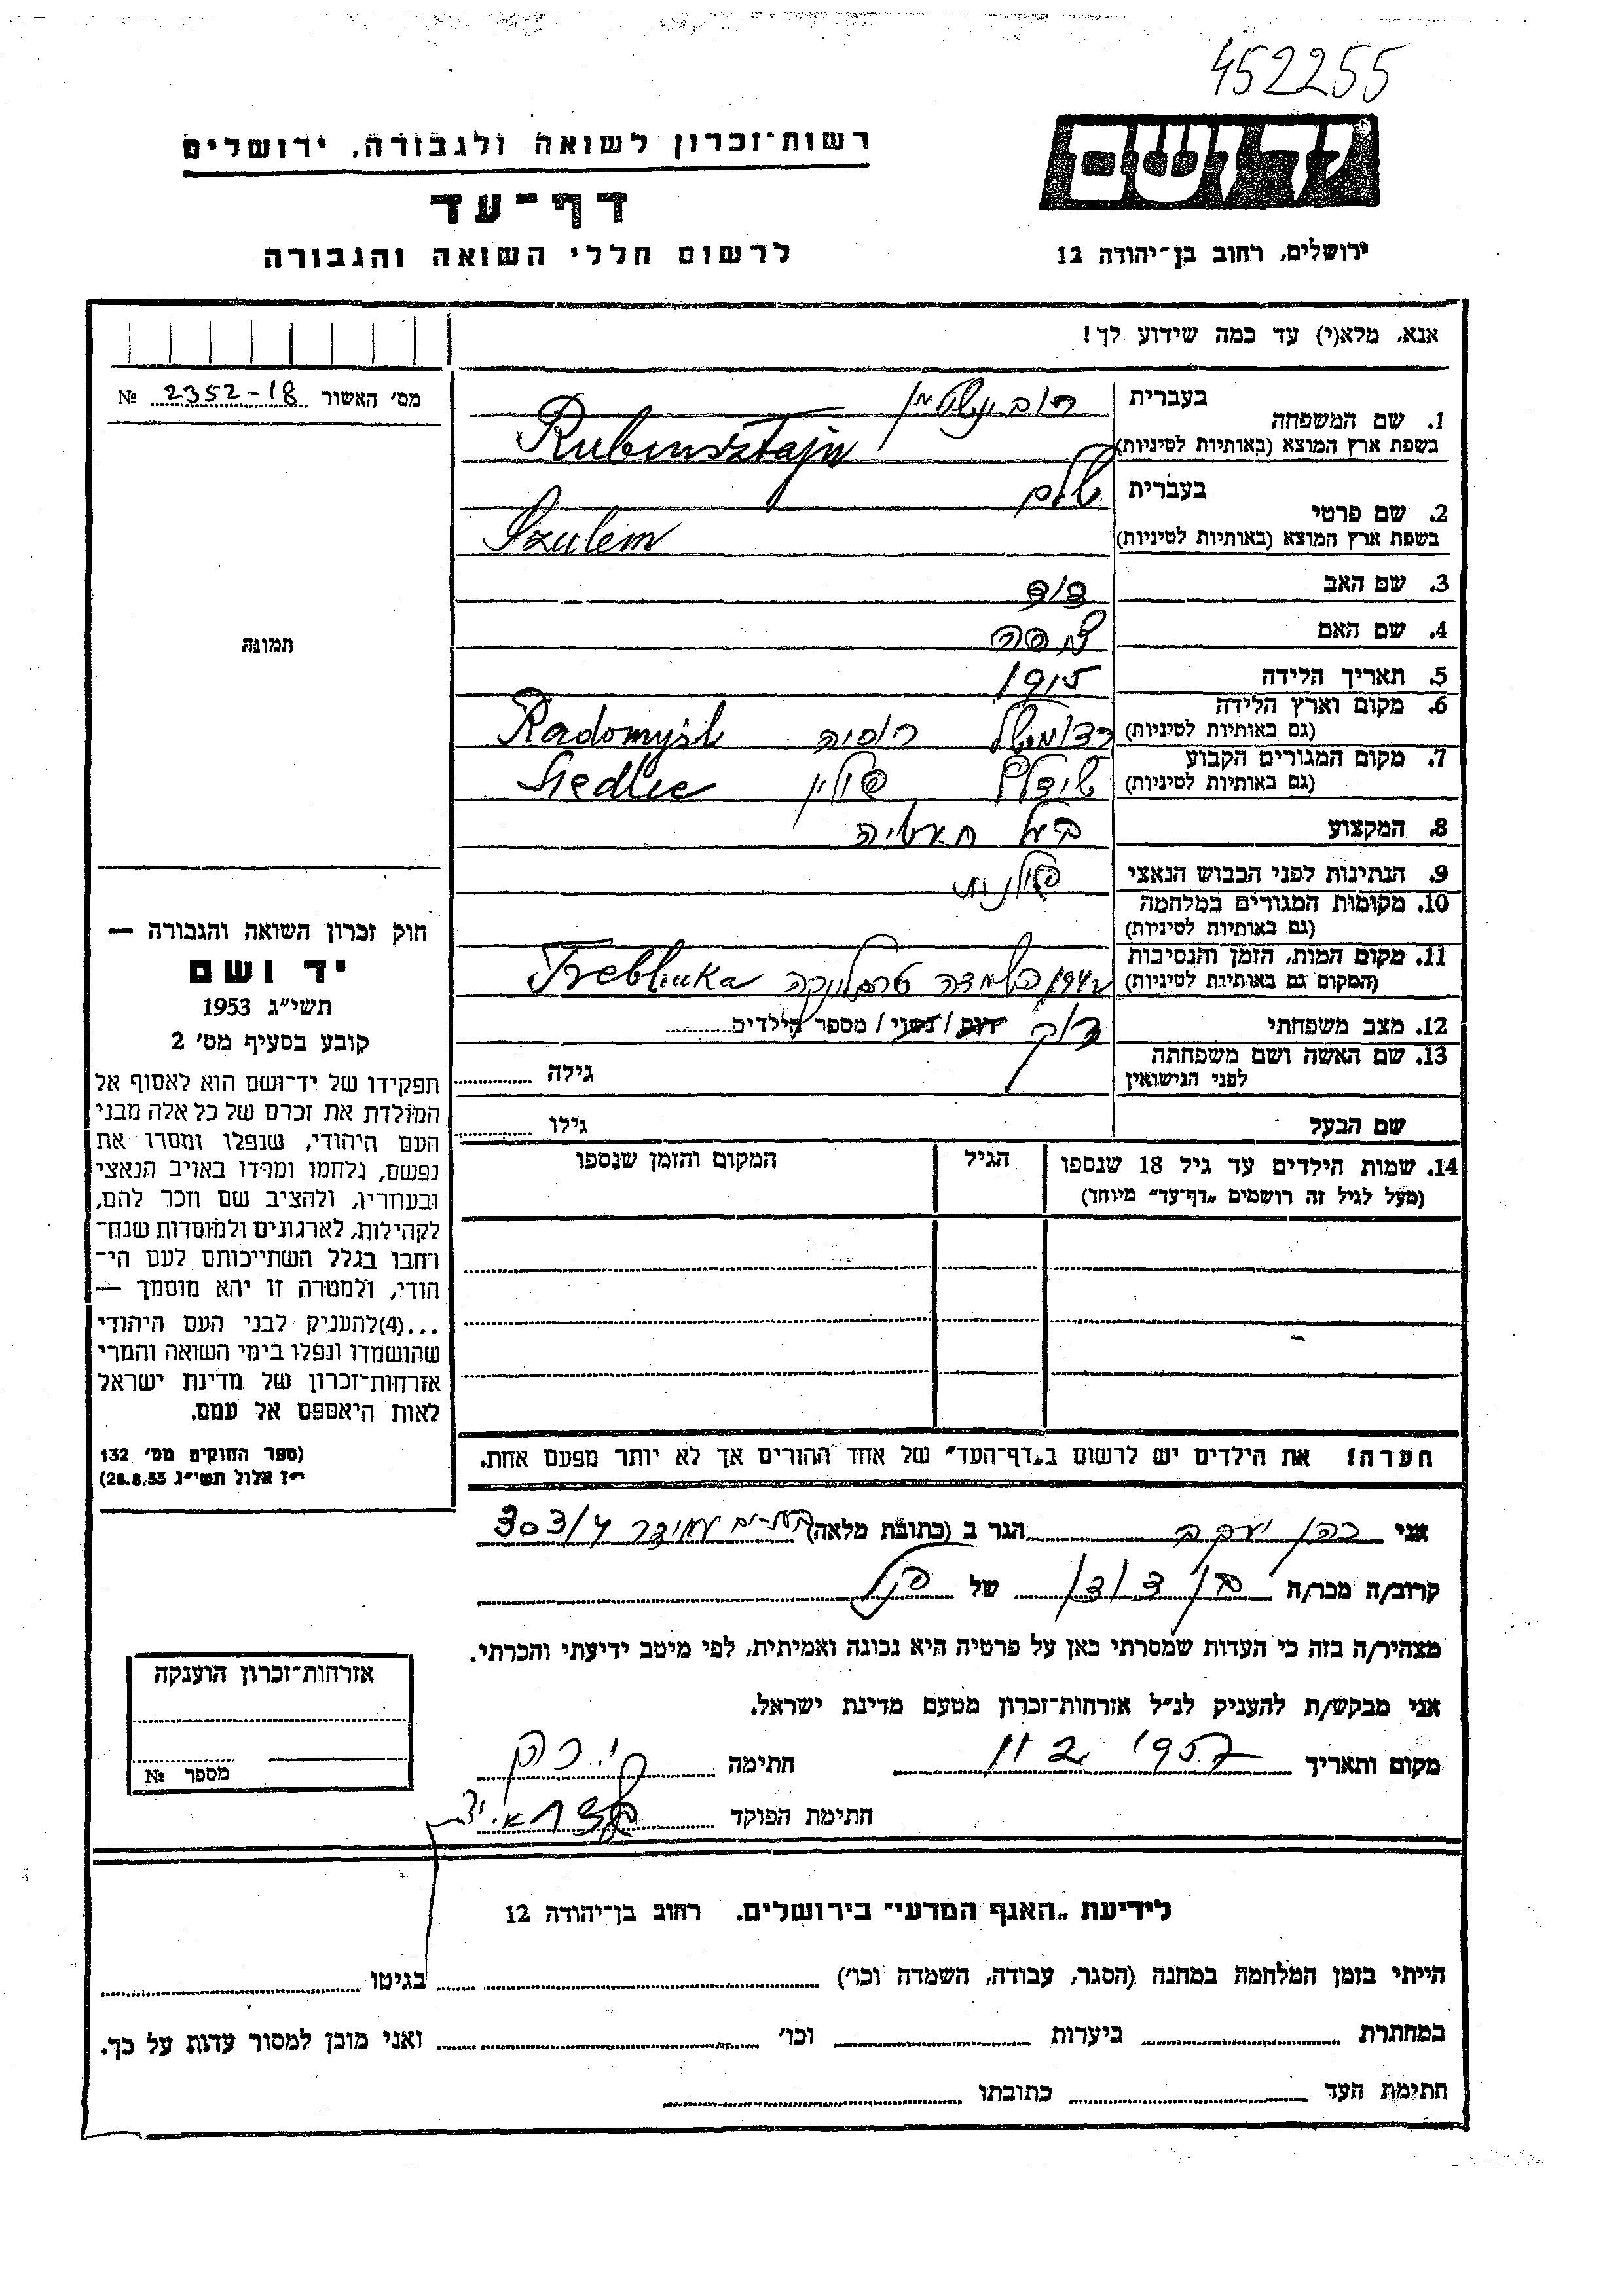 452255
יד ושם
רשות־זכרון לשואה ולגבורה, ירושלים
דף־עד
לרשום חללי השואה והגבורה
ירושלים, רחוב בן־יהודה 12
אנא, מלא(י) עד כמה שידוע לך!
מס׳ האשור 2352-18 №
1. שם המשפחה
בעברית רובינשטין
בשפת ארץ המוצא (באותיות לטיניות) Rubinsztajn
2. שם פרטי
בעברית שלם
בשפת ארץ המוצא (באותיות לטיניות) Szulem
3. שם האב דוד
4. שם האם
5. תאריך הלידה 1915
6. מקום וארץ הלידה
(גם באותיות לטיניות) רדומישל רוסיה Radomyśl
7. מקום המגורים הקבוע
(גם באותיות לטיניות) שידלץ פולין Siedlce
8. המקצוע בעל
9. הנתינות לפני הכבוש הנאצי פולנית
10. מקומות המגורים במלחמה
(גם באותיות לטיניות)
11. מקום המות, הזמן והנסיבות
(המקום גם באותיות לטיניות) 1942 בהשמדה טרבלינקה Treblinka
12. מצב משפחתי רוק רווק / נשוי / מספר הילדים
13. שם האשה ושם משפחתה
לפני הנישואין
גילה
שם הבעל
גילו
14. שמות הילדים עד גיל 18 שנספו
(מעל לגיל זה רושמים „דף־עד״ מיוחד)
הגיל
המקום והזמן שנספו
הערה! את הילדים יש לרשום ב„דף־העד״ של אחד ההורים אך לא יותר מפעם אחת.
תמונה
חוק זכרון השואה והגבורה —
יד ושם
תשי״ג 1953
קובע בסעיף מס׳ 2
תפקידו של יד־ושם הוא לאסוף אל
המולדת את זכרם של כל אלה מבני
העם היהודי, שנפלו ומסרו את
נפשם, נלחמו ומרדו באויב הנאצי
ובעוזריו, ולהציב שם וזכר להם,
לקהילות, לארגונים ולמוסדות שנח־
רבו בגלל השתייכותם לעם הי־
הודי, ולמטרה זו יהא מוסמך —
...(4) להעניק לבני העם היהודי
שהושמדו ונפלו בימי השואה והמרי
אזרחות־זכרון של מדינת ישראל
לאות היאספם אל עמם.
(ספר החוקים מס׳ 132
י״ז אלול תשי״ג 28.8.53)
אני כהן יעקב הגר ב (כתובת מלאה) 303/4
קרוב/ה מכר/ה בן דודן של הנ״ל
מצהיר/ה בזה כי העדות שמסרתי כאן על פרטיה היא נכונה ואמיתית, לפי מיטב ידיעתי והכרתי.
אני מבקש/ת להעניק לנ״ל אזרחות־זכרון מטעם מדינת ישראל.
מקום ותאריך 1957 חתימה
חתימת הפוקד
אזרחות־זכרון הוענקה
מספר №
לידיעת „האגף המדעי״ בירושלים, רחוב בן־יהודה 12
הייתי בזמן המלחמה במחנה (הסגר, עבודה, השמדה וכו׳) בגיטו
במחתרת ביערות וכו׳ ואני מוכן למסור עדות על כך.
חתימת העד כתובתו